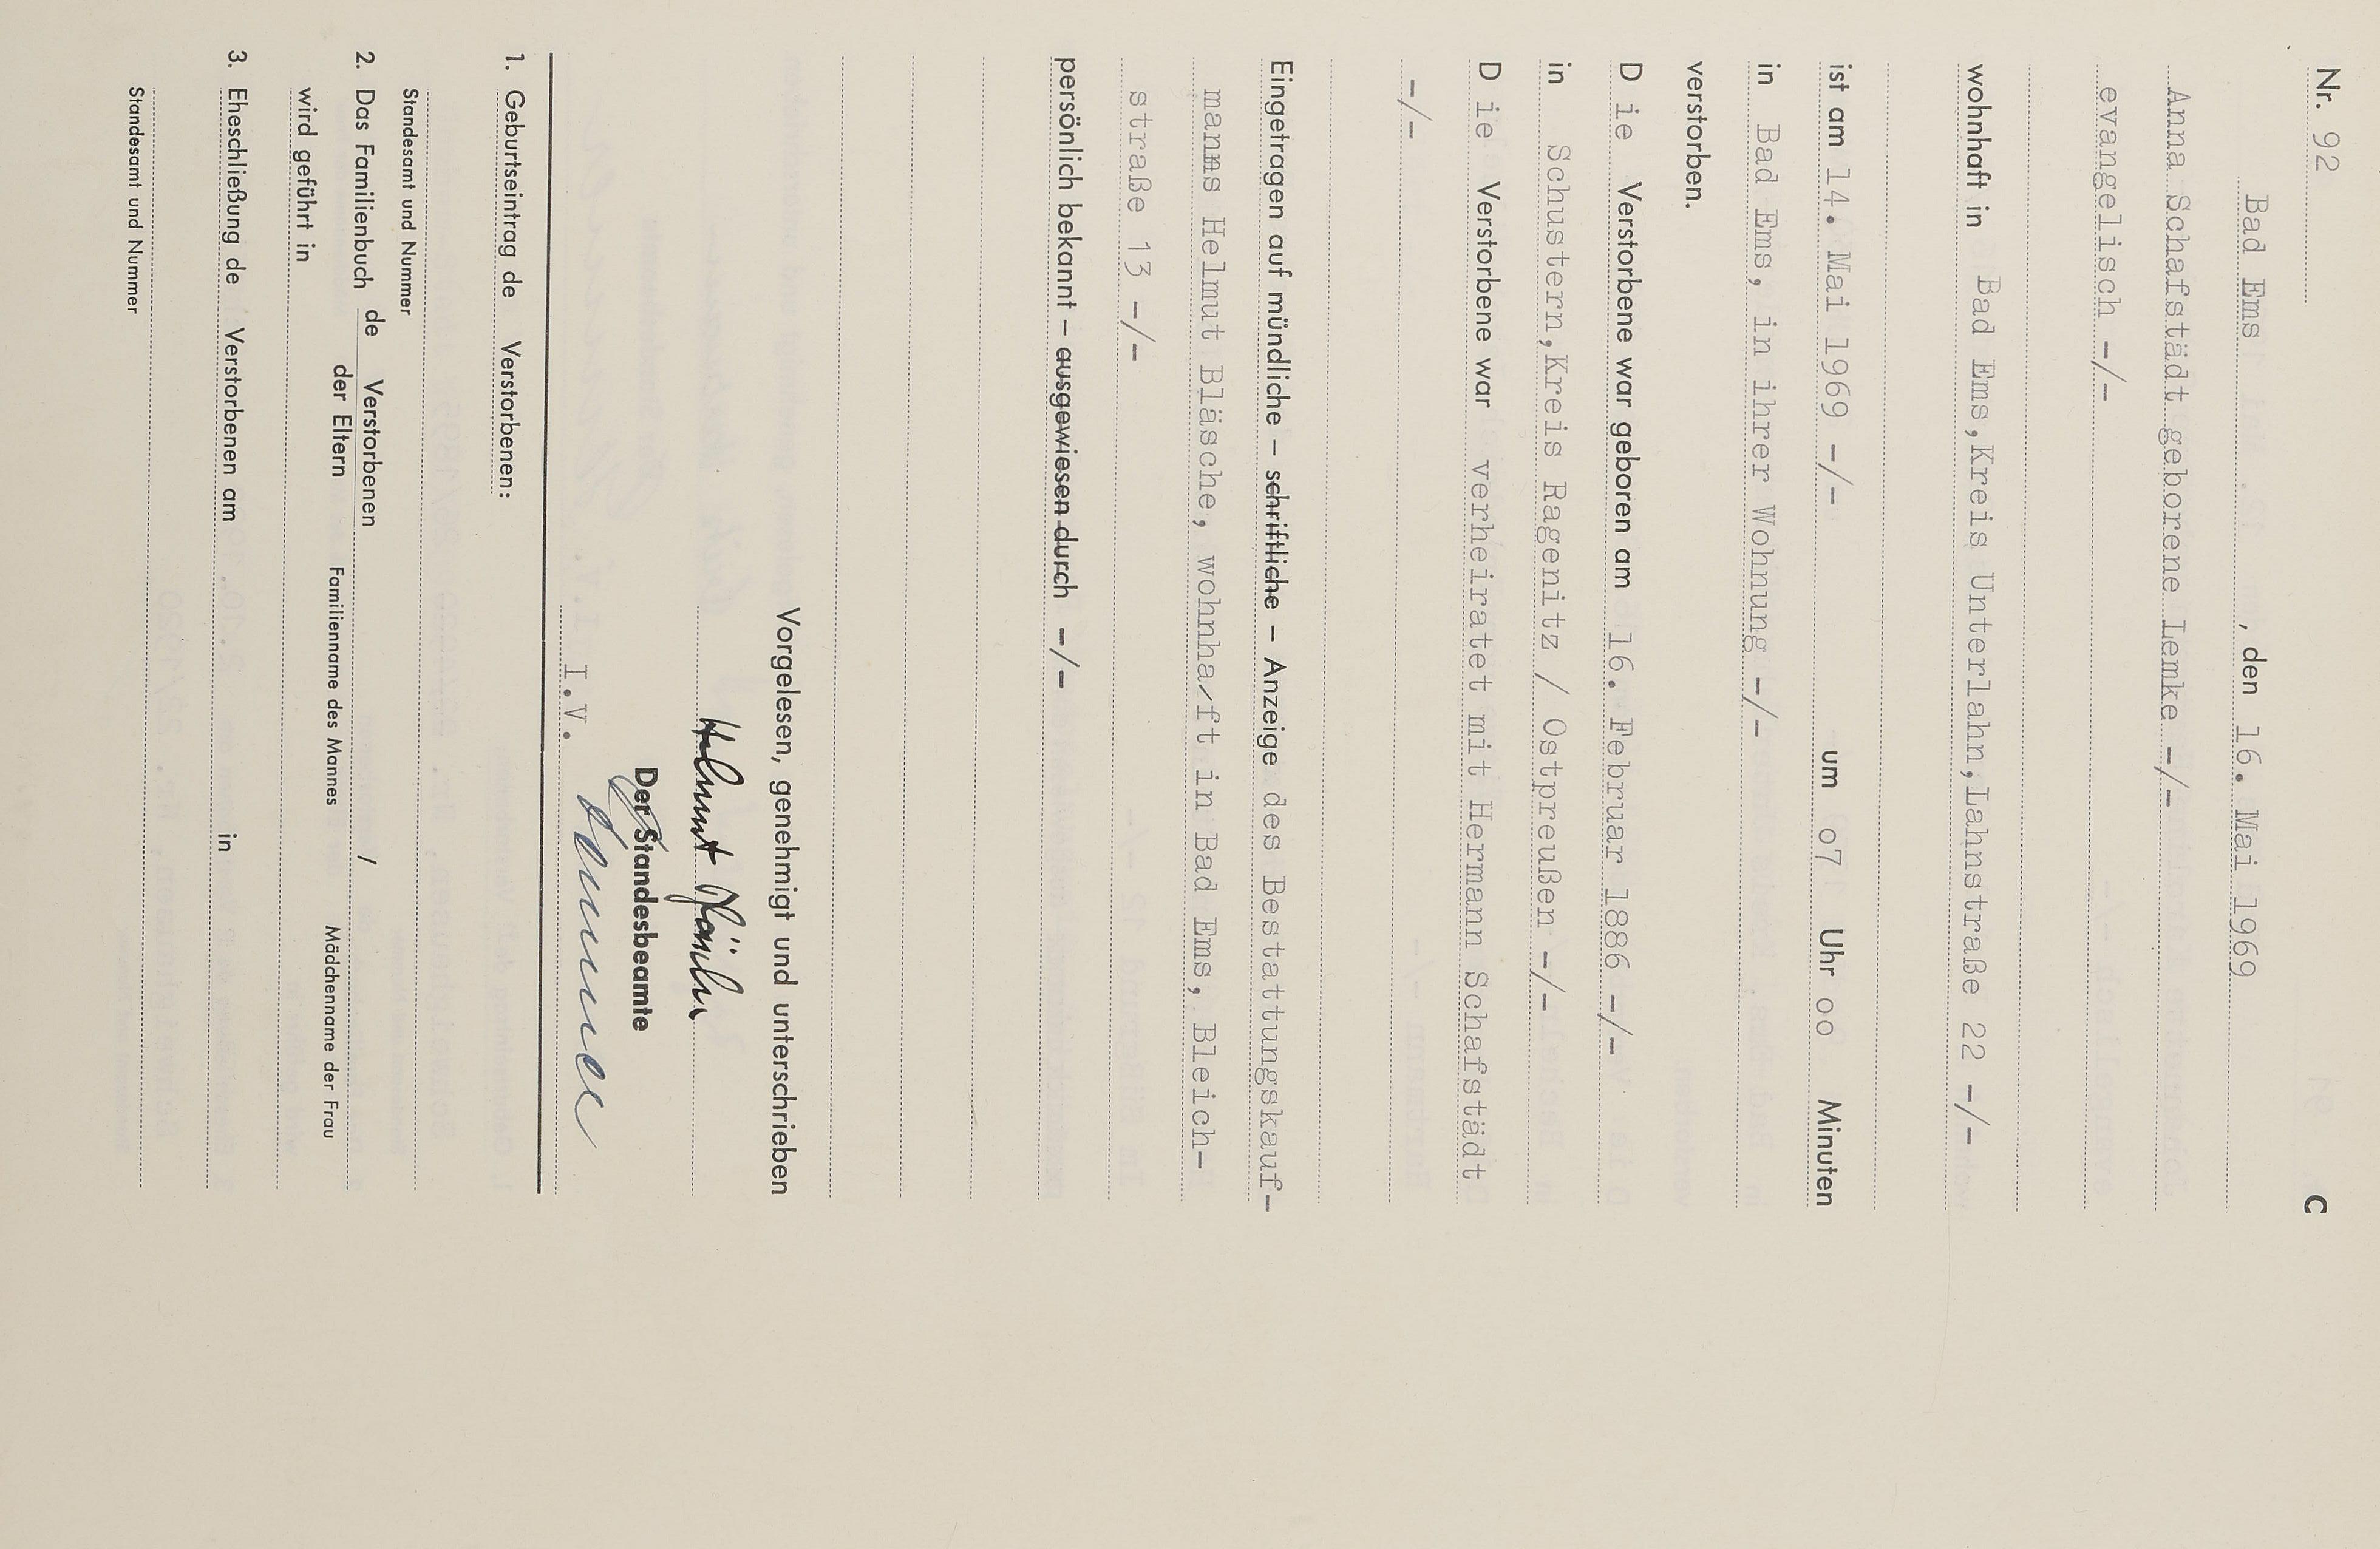 Nr. 92 C
Bad Ems , den 16. Mai 1969
Anna Schafstädt geborene Lemke -/-
evangelisch -/-
wohnhaft in Bad Ems,Kreis Unterlahn,Lahnstraße 22 -/-
ist am 14. Mai 1969 -/- um o7 Uhr oo Minuten
in Bad Ems, in ihrer Wohnung -/-
verstorben.
D ie Verstorbene war geboren am 16. Februar 1886 -/-
in Schustern,Kreis Ragenitz / Ostpreußen -/-
D ie Verstorbene war verheiratet mit Hermann Schafstädt
-/-
Eingetragen auf mündliche – schriftliche – Anzeige des Bestattungskauf-
manns Helmut Bläsche, wohnha/ft in Bad Ems, Bleich-
straße 13 -/-
persönlich bekannt – ausgewiesen durch -/-
Vorgelesen, genehmigt und unterschrieben
Helmut
Der Standesbeamte
I.V.
1. Geburtseintrag de Verstorbenen:
Standesamt und Nummer
2. Das Familienbuch de Verstorbenen /
der Eltern Familienname des Mannes Mädchenname der Frau
wird geführt in
3. Eheschließung de Verstorbenen am in
Standesamt und Nummer